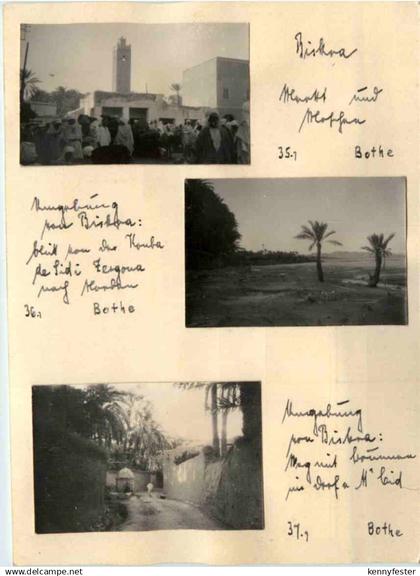 Biskra
Markt und
Moschee
35.) Bothe
Umgebung
von Biskra:
blick von der Kouba
de Sidi Zergona
nach Norden
36.) Bothe
Umgebung
von Biskra:
Weg mit brunnen
im dorf M'Cid
37.) Bothe
www.delcampe.net
kennyfester